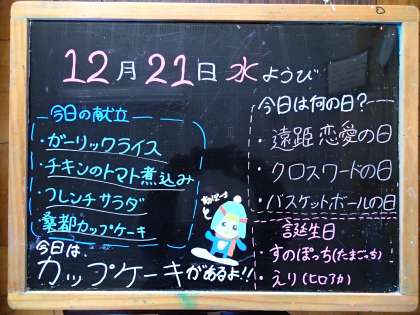 12月21日水ようび
今日の献立
・ガーリックライス
・チキンのトマト煮込み
・フレンチサラダ
・桑都カップケーキ
今日は、
カップケーキがあるよ!!
今日は何の日?
・遠距恋愛の日
・クロスワードの日
・バスケットボールの日
誕生日
・すのぽっち(たまごっち)
・えり(ヒロアカ)